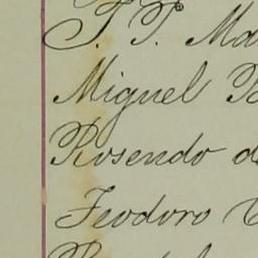 J. P. Ma
Miguel B
Rosendo d
Feodoro C